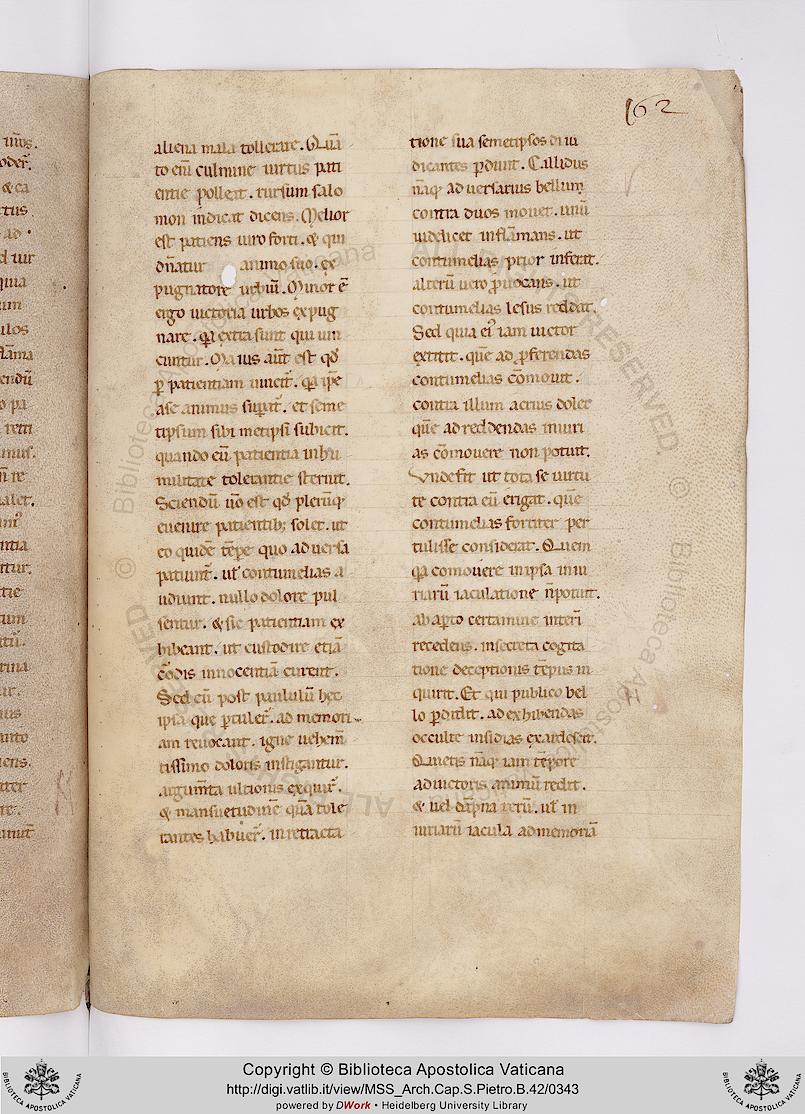 162
aliena mala tollerare. Quā
to enī culmine uirtus pati
entie polleat. rursum salo
mon indicat dicens. Melior
est patiens uiro forti. & qui
dn̄atur animo suo. ex
pugnatore urbiū. Minor ē
ergo uictoria urbes expug
nare. qa extra sunt qui uin
cuntur. Maius aūt est qd̓
p patientiam uincit̓. qa ip̄e
a se animus supat̓. et seme
tipsum sibi metipsi subicit.
quando eū patientia in hu
militate tolerantie sternit.
Sciendū uo est qd̓ plerūq̓
euenire patientib; solet. ut
eo quidē tēpe quo aduersa
patiunt̓. ul̓ contumelias a
udiunt. nullo dolore pul
sentur. & sic patientiam ex
hibeant. ut custodire etiā
cordis innocentiā curent.
Sed cū post paululū hec
ipsa que ptuler̓. ad memori
am reuocant. igne uehem̄
tissimo doloris instigantur.
argum̄ta ultionis exquir̓.
& mansuetudinē quā tole
rantes habuer̓. in retracta
tione sua semetipsos di iu
dicantes pdunt. Callidus
nāq̓ aduersarius bellum
contra duos mouet. unū
uidelicet inflāmans. ut
contumelias prior inferat.
alterū uero puocans. ut
contumelias lesus reddat.
Sed quia ei̓ iam uictor
extitit. quē ad pferendas
contumelias cōmouit.
contra illum acrius dolet
quē ad reddendas iniuri
as cōmouere non potuit.
Unde fit ut tota se uirtu
te contra eū erigat. que
contumelias fortiter per
tulisse considerat. Quem
qa comouere in ipsa iniu
riarū iaculatione n̄ potuit.
ab apto certamine interī
recedens. in secreta cogita
tione deceptionis tēpus in
quirit. Et qui publico bel
lo pdidit. ad exhibendas
occulte insidias exardescit.
Quietis nāq̓ iam tēpore
ad uictoris animū redit.
& uel dāpna rerū. ul̓ in
iuriarū iacula ad memoriā
Copyright © Biblioteca Apostolica Vaticana
http://digi.vatlib.it/view/MSS_Arch.Cap.S.Pietro.B.42/0343
powered by DWork • Heidelberg University Library